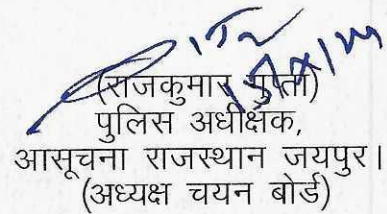 (राजकुमार गुप्ता)
पुलिस अधीक्षक,
आसूचना राजस्थान जयपुर।
(अध्यक्ष चयन बोर्ड)